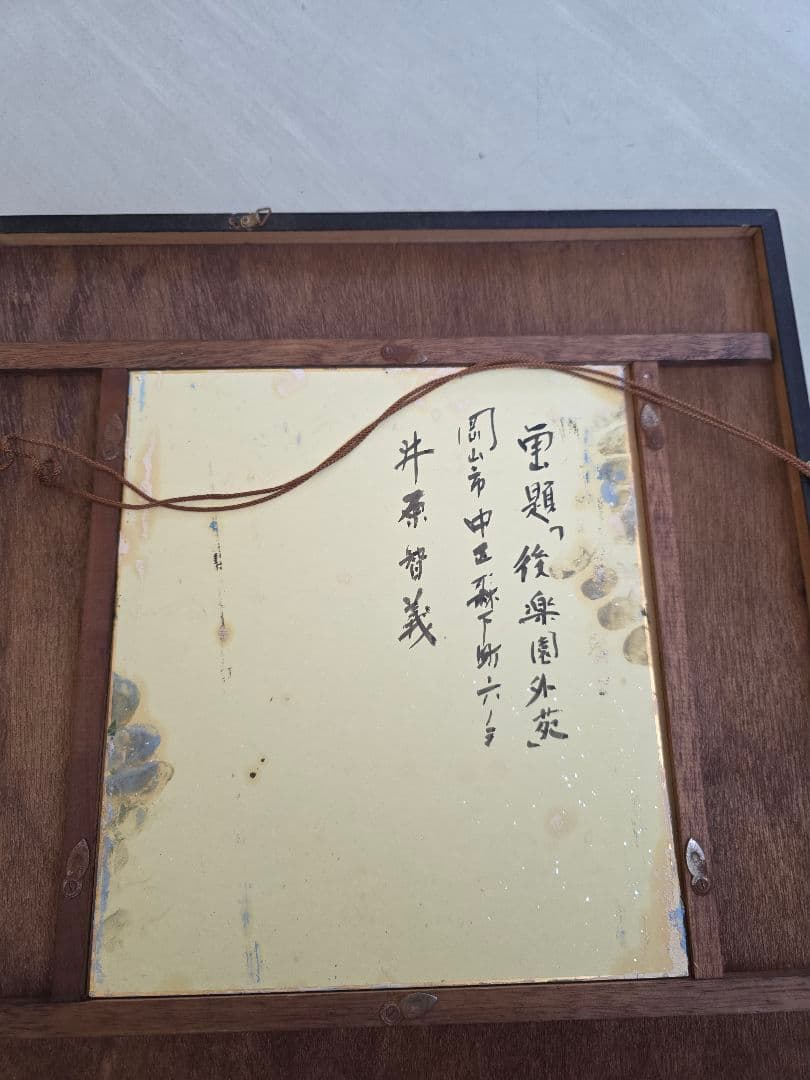 画題「後楽園外苑」
岡山市中区森下町六ノ
井原智義